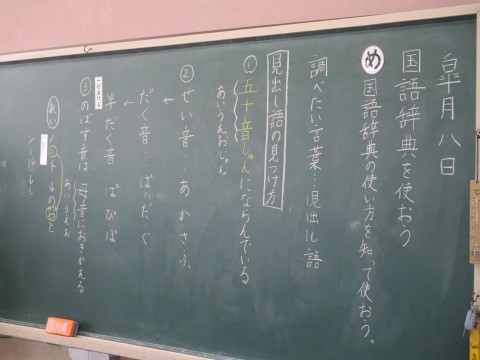 皐月八日
国語辞典を使おう
め 国語辞典の使い方を知って使おう。
調べたい言葉…見出し語
見出し語の見つけ方
① 五十音じゅんにならんでいる
あいうえおじゅん
② せい音…あかさふ
↓
だく音…ばだぐ
↓
半だく音…ぱぴぽ
③ のばす音は母音におきかえる
あいうえお
れい